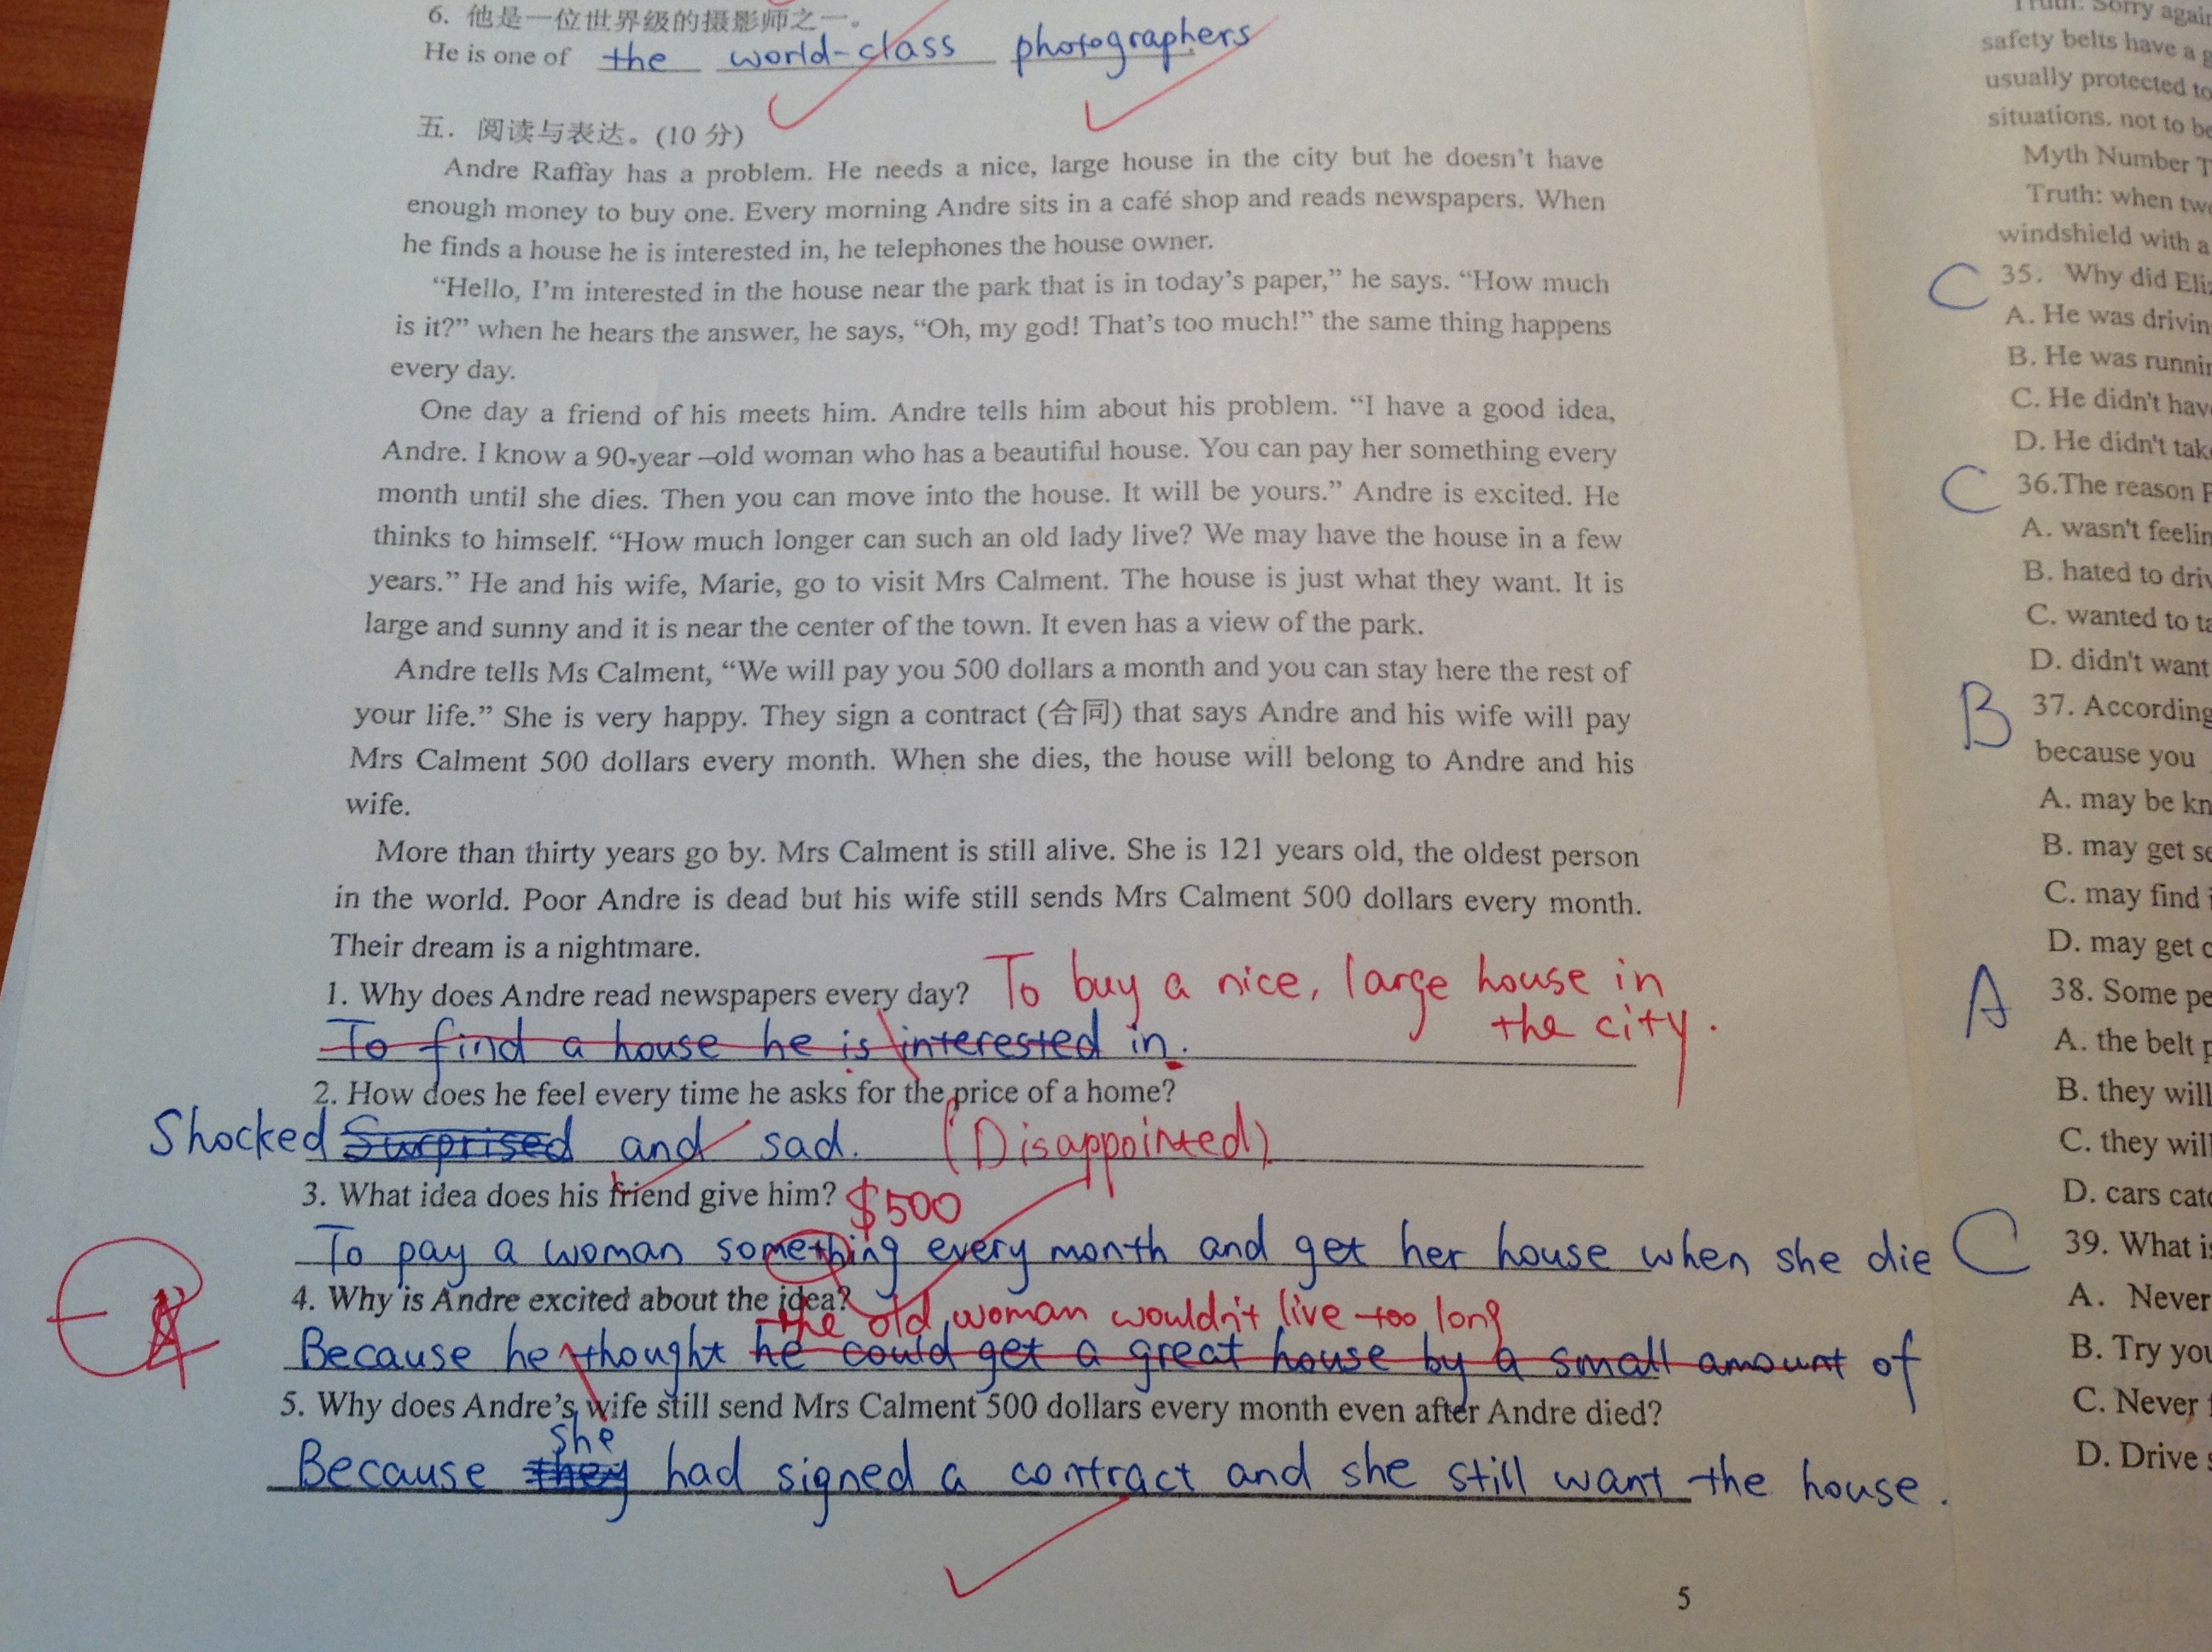 6. 他是一位世界级的摄影师之一。
He is one of the world-class photographers
五. 阅读与表达。(10 分)
Andre Raffay has a problem. He needs a nice, large house in the city but he doesn't have
enough money to buy one. Every morning Andre sits in a café shop and reads newspapers. When
he finds a house he is interested in, he telephones the house owner.
“Hello, I'm interested in the house near the park that is in today's paper,” he says. “How much
is it?” when he hears the answer, he says, “Oh, my god! That's too much!” the same thing happens
every day.
One day a friend of his meets him. Andre tells him about his problem. “I have a good idea,
Andre. I know a 90-year –old woman who has a beautiful house. You can pay her something every
month until she dies. Then you can move into the house. It will be yours.” Andre is excited. He
thinks to himself. “How much longer can such an old lady live? We may have the house in a few
years.” He and his wife, Marie, go to visit Mrs Calment. The house is just what they want. It is
large and sunny and it is near the center of the town. It even has a view of the park.
Andre tells Ms Calment, “We will pay you 500 dollars a month and you can stay here the rest of
your life.” She is very happy. They sign a contract (合同) that says Andre and his wife will pay
Mrs Calment 500 dollars every month. When she dies, the house will belong to Andre and his
wife.
More than thirty years go by. Mrs Calment is still alive. She is 121 years old, the oldest person
in the world. Poor Andre is dead but his wife still sends Mrs Calment 500 dollars every month.
Their dream is a nightmare.
1. Why does Andre read newspapers every day? To buy a nice, large house in
the city.
To find a house he is interested in.
2. How does he feel every time he asks for the price of a home?
Shocked Surprised and sad. (Disappointed)
3. What idea does his friend give him? $500
To pay a woman something every month and get her house when she die
4. Why is Andre excited about the idea?
the old woman wouldn't live too long
Because he thought he could get a great house by a small amount of
5. Why does Andre's wife still send Mrs Calment 500 dollars every month even after Andre died?
she
Because they had signed a contract and she still want the house.
5
Truth: Sorry again
safety belts have a
usually protected to
situations. not to
Myth Number
Truth: when
windshield with a
C 35. Why did
A. He was
B. He was
C. He didn't
D. He didn't
C 36.The reason
A. wasn't
B. hated to
C. wanted to
D. didn't want
B 37. According
because you
A. may be
B. may get
C. may find
D. may get
A 38. Some
A. the belt
B. they will
C. they will
D. cars
C 39. What
A. Never
B. Try
C. Never
D. Drive